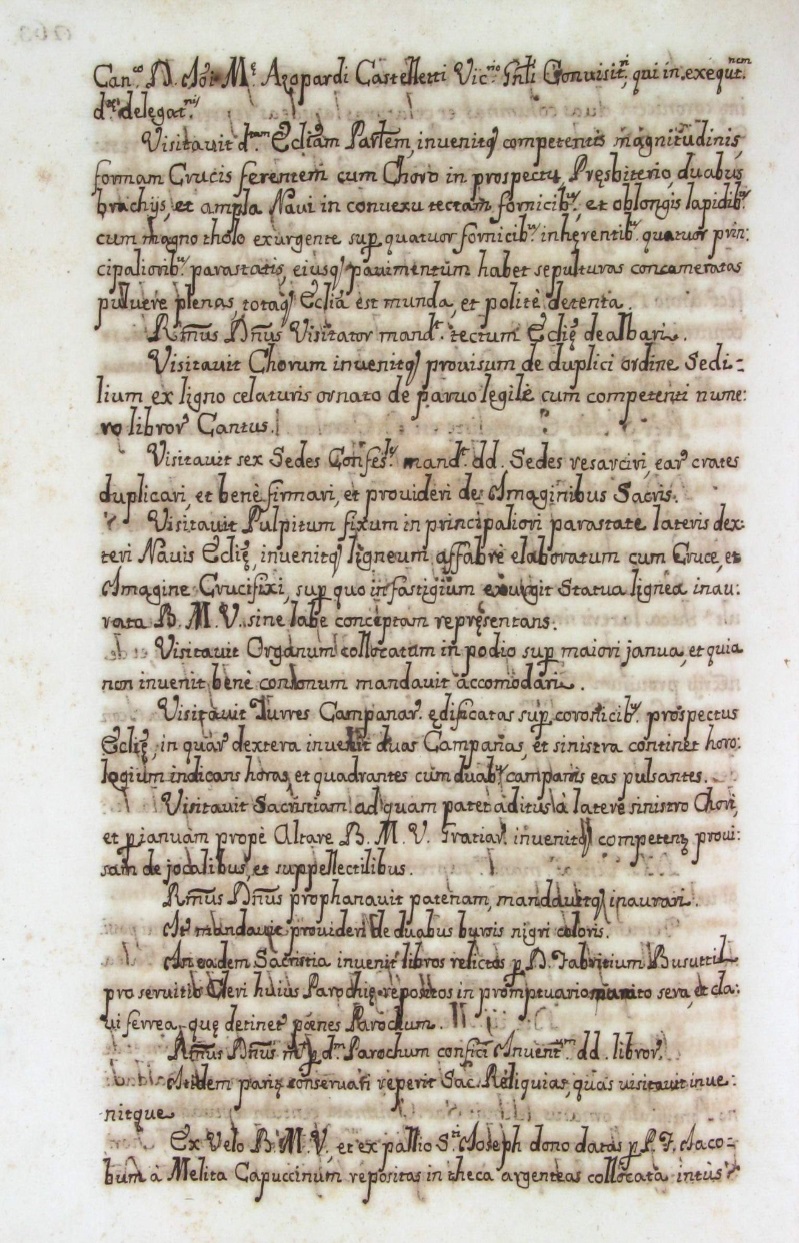 Canco D. Joi Me Azopardi Castelletti Vicrio Gnli Convisitri, qui in exequtnem
dae delegatnis
Visitavit dtam Ecliam Parlem, invenitq competentis magnitudinis,
formam Crucis ferentem cum Choro in prospectu, Pręsbiterio, duabus
brachijs, et ampla Navi in convexu tectam fornicibs, et oblongis lapidibs
cum magno tholo exurgente sup quatuor fornicibs inhęrentibs quatuor prin:
cipalioribs parastatis, eiusq pavimentum habet sepulturas concameratas
pulvere plenas, totaq Eclia est munda, et politè detenta.
Rmus Dnus Visitator mandt tectum Eclię dealbari.
Visitavit Chorum invenitq provisum de duplici ordine Sedi-
lium ex ligno celaturis ornato de parvo legilè cum competenti nume:
ro libror Cantus.
Visitavit sex Sedes Confesles mandt dd. Sedes resarciri, ear crates
duplicari, et benè firmari, et provideri de Imaginibus Sacris.
Visitavit Pulpitum fixum in principaliori parastate lateris dex:
teri Navis Eclię, invenitq ligneum affabrè elaboratum cum Cruce, et
Imagine Crucifixi, sup quo in fastigium exurgit Statua lignea inau:
rata B. M. V. sine labe conceptam repręsentans.
Visitavit Organum collocatum in podio sup maiori janua, et quia
non invenit benè consonum mandavit accomodari.
Visitavit Turres Campanar ędificatas sup coronicibs prospectus
Eclię, in quar dextera invenit duas Campanas, et sinistra continet horo:
logium indicans horas, et quadrantes cum duabs campanis eas pulsantes.
Visitavit Sacristiam ad quam patet aditus à latere sinistro Chori,
et p januam propè Altare B. M. V. Gratiar invenitq competenr provi:
sam de jocalibus, et suppellectilibus.
Rmus Dnus prophanavit patenam, mandavitq inaurari.
It mandavit provideri de duabus bursis nigri coloris.
In eadem Sacristia invenit libros relictos p D. Fabritium Busuttil
pro servitio Cleri huius Parochię repositos in promptuario munito sera, et cla:
vi ferrea, quę detinet pęnes Parochum.
Rmus Dnus mt p dm Parochum confici Inventm dd. libror.
Ibidem parir conservari reperit Sac. Reliquias, quas visitavit inve:
nitque
Ex Velo B. M. V., et ex pallio Sti Joseph dono datas p P. F. Jaco-
bum à Melita Capuccinum repositas in theca argentea collocata intùs